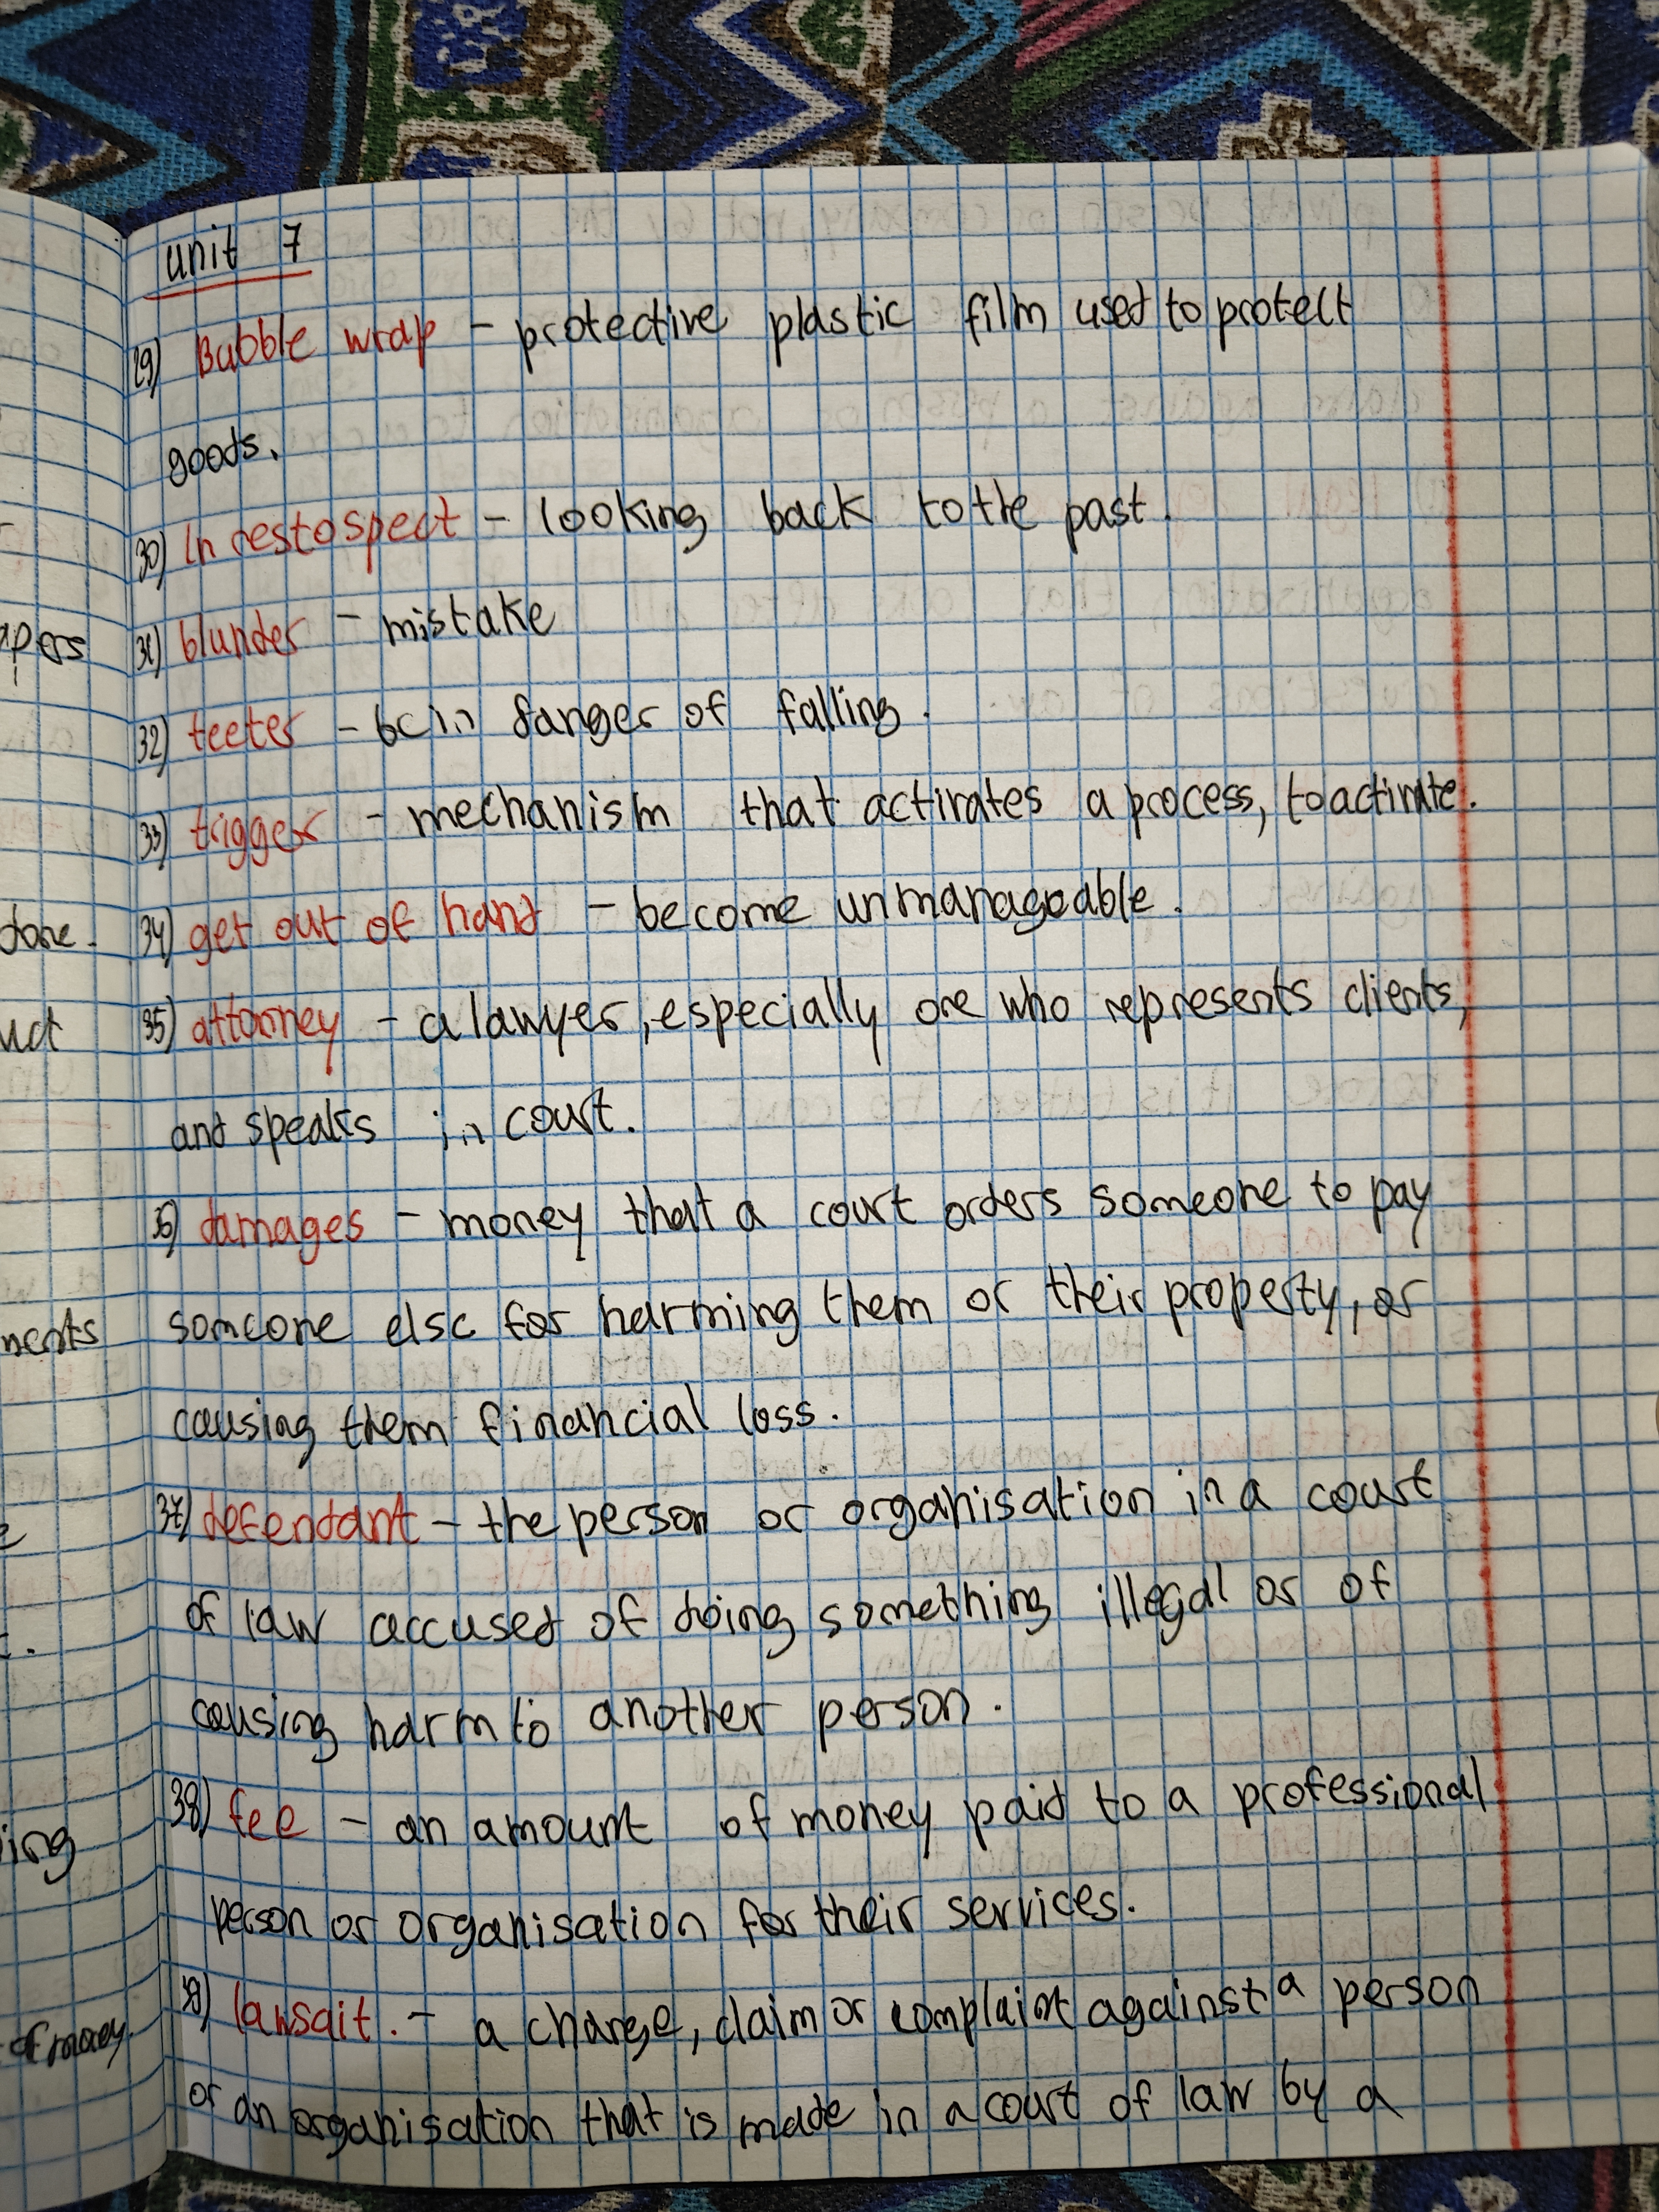 unit 7
29) Bubble wrap - protective plastic film used to protect
goods.
30) In restospect - looking back to the past.
31) blunder - mistake
32) teeter - be in danger of falling.
33) trigger - mechanism that activates a process, to activate.
34) get out of hand - become unmanageable.
35) attorney - a lawyer, especially one who represents clients,
and speaks in court.
36) damages - money that a court orders someone to pay
someone else for harming them or their property, or
causing them financial loss.
37) defendant - the person or organisation in a court
of law accused of doing something illegal or of
causing harm to another person.
38) fee - an amount of money paid to a professional
person or organisation for their services.
39) lawsait. - a charge, claim or complaint against a person
or an organisation that is made in a court of law by a